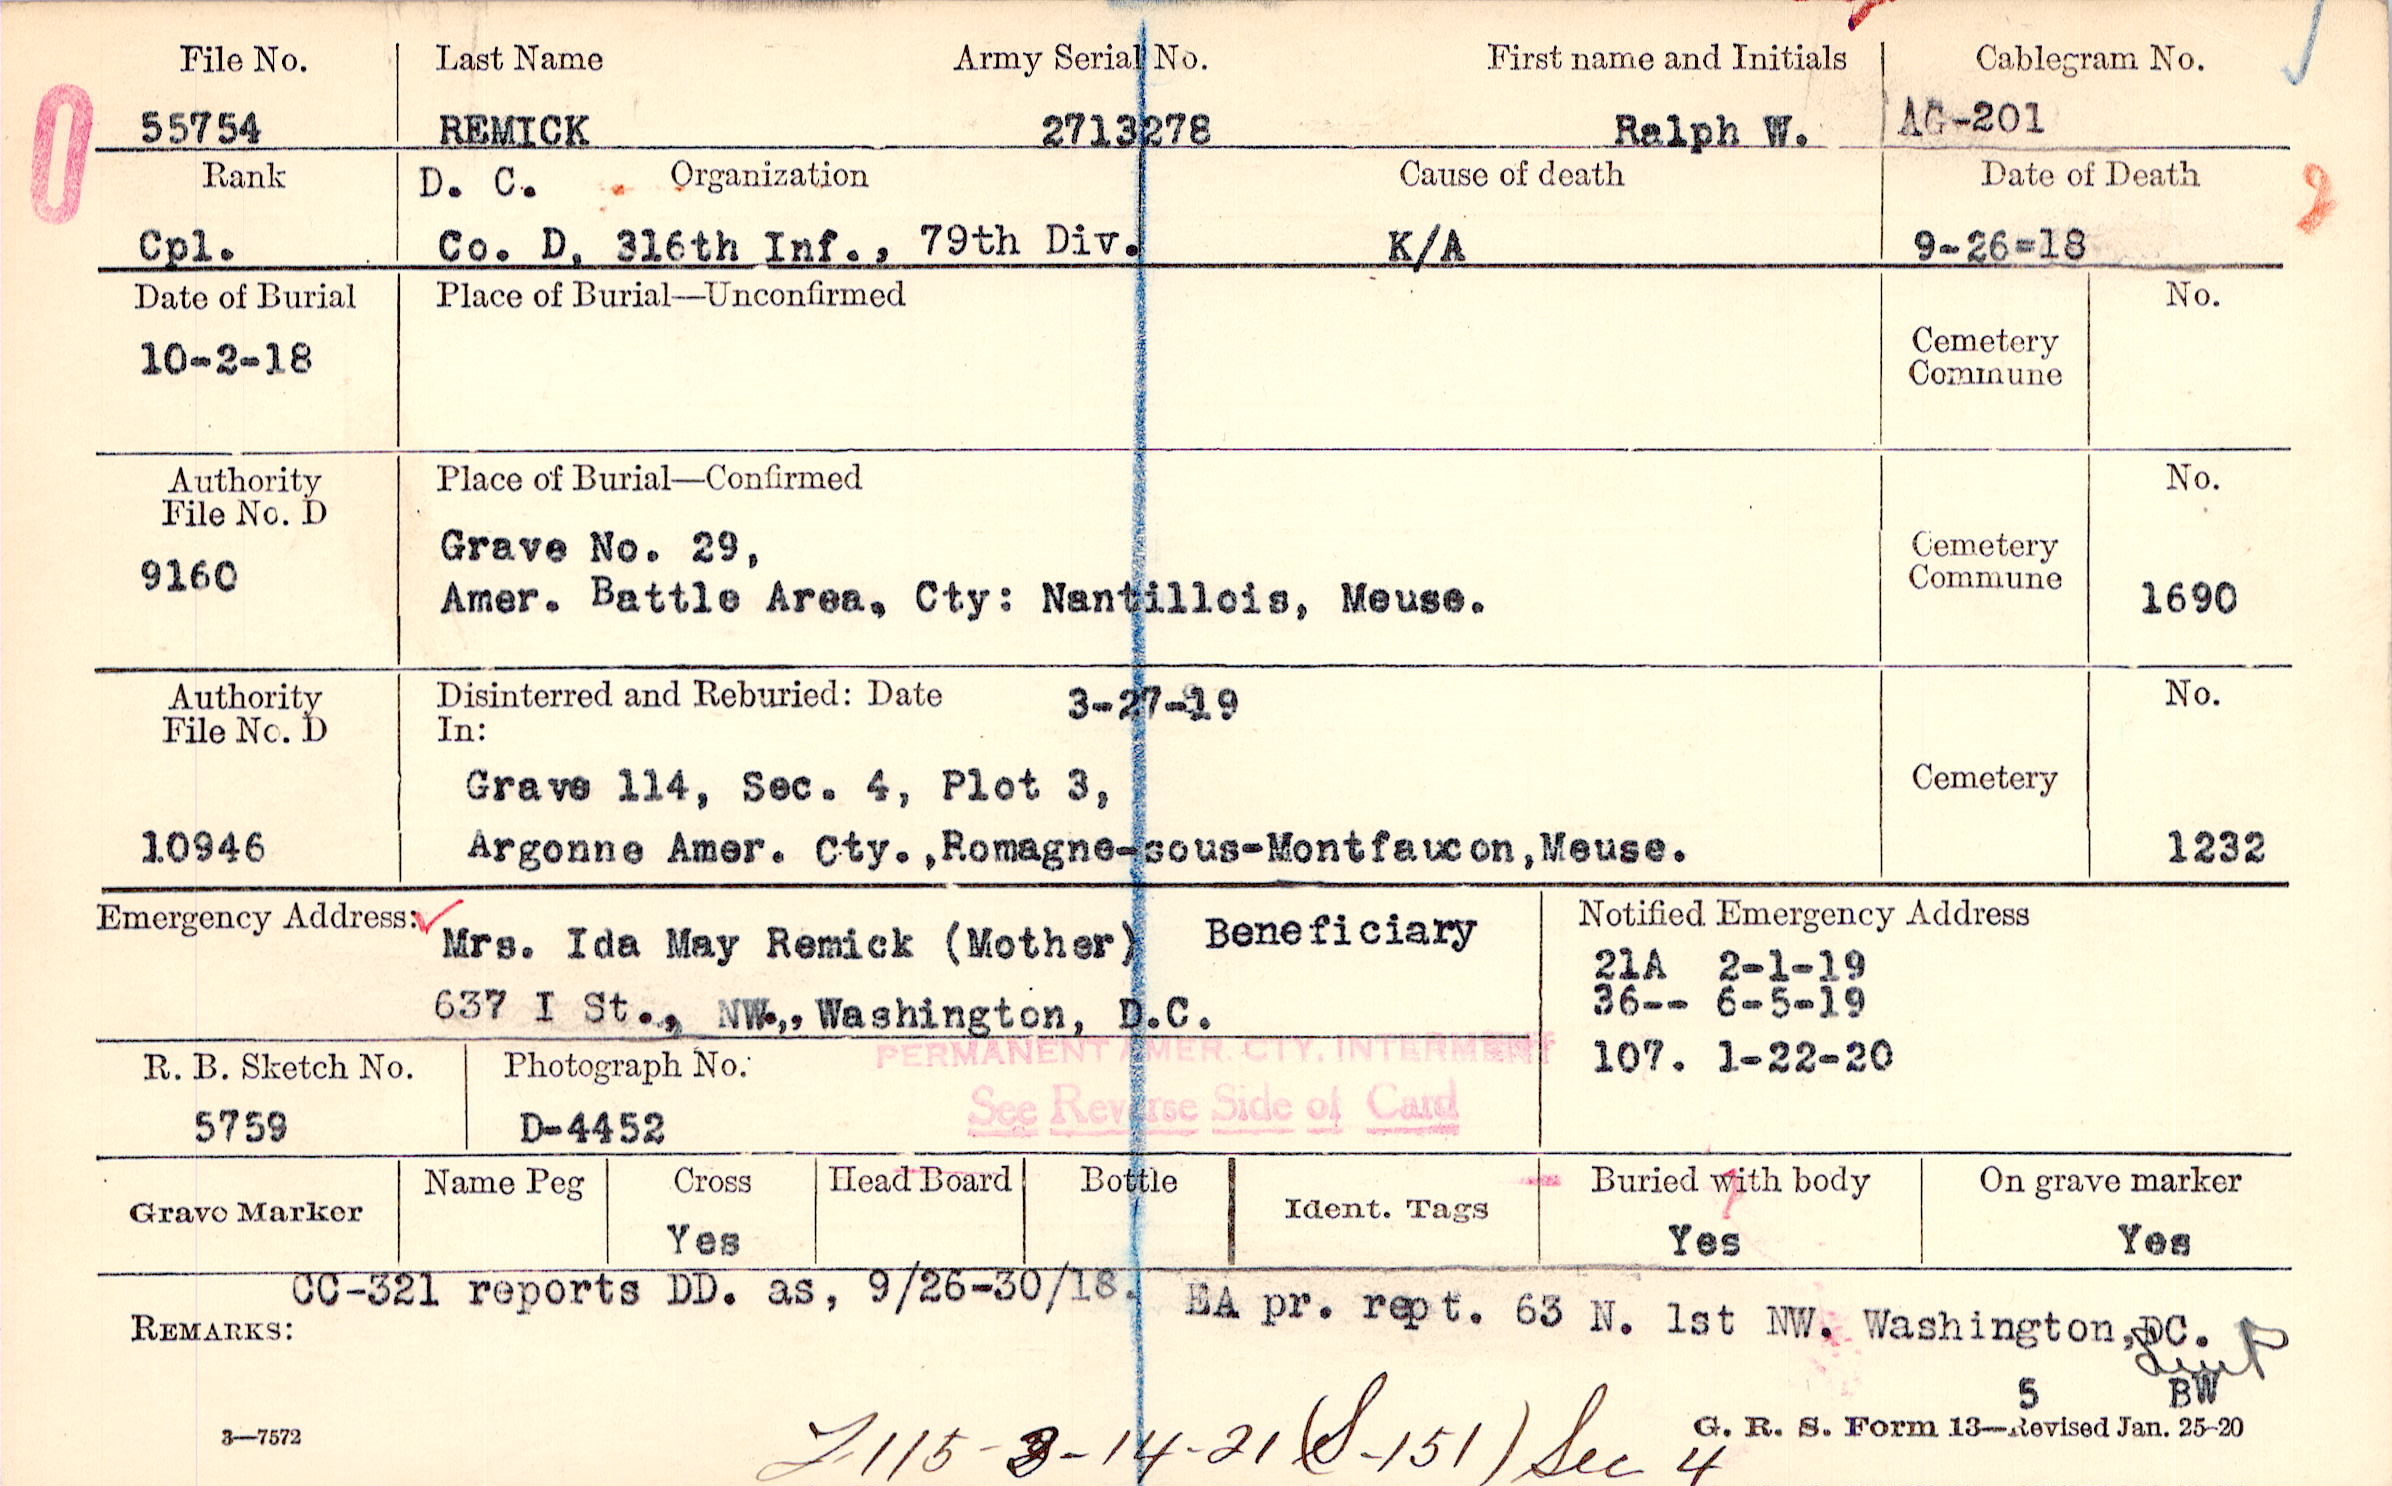 File No. Last Name Army Serial No. First name and Initials Cablegram No.
55754 REMICK 2713278 Ralph W. AG-201
Rank D. C. Organization Cause of death Date of Death
Cpl. Co. D, 316th Inf., 79th Div. K/A 9-26=18
Date of Burial Place of Burial—Unconfirmed No.
10-2-18 Cemetery
Commune
Authority Place of Burial—Confirmed No.
File No. D
9160 Grave No. 29, Cemetery
Commune
Amer. Battle Area, Cty: Nantillois, Meuse. 1690
Authority Disinterred and Reburied: Date 3-27-19 No.
File No. D In:
Grave 114, Sec. 4, Plot 3, Cemetery
10946 Argonne Amer. Cty.,Romagne-sous-Montfaucon,Meuse. 1232
Emergency Address: Mrs. Ida May Remick (Mother) Beneficiary Notified Emergency Address
21A 2-1-19
637 I St., NW., Washington, D.C. 36-- 6-5-19
PERMANENT AMER. CTY. INTERMENT
R. B. Sketch No. Photograph No. 107. 1-22-20
See Reverse Side of Card
5759 D-4452
Grave Marker Name Peg Cross Head Board Bottle Ident. Tags Buried with body On grave marker
Yes Yes Yes
CC-321 reports DD. as, 9/26-30/18. EA pr. rept. 63 N. 1st NW. Washington, DC.
REMARKS:
5 BW
3—7572 G. R. S. Form 13—Revised Jan. 25-20
115-3-14-21 (S-151) Sec 4